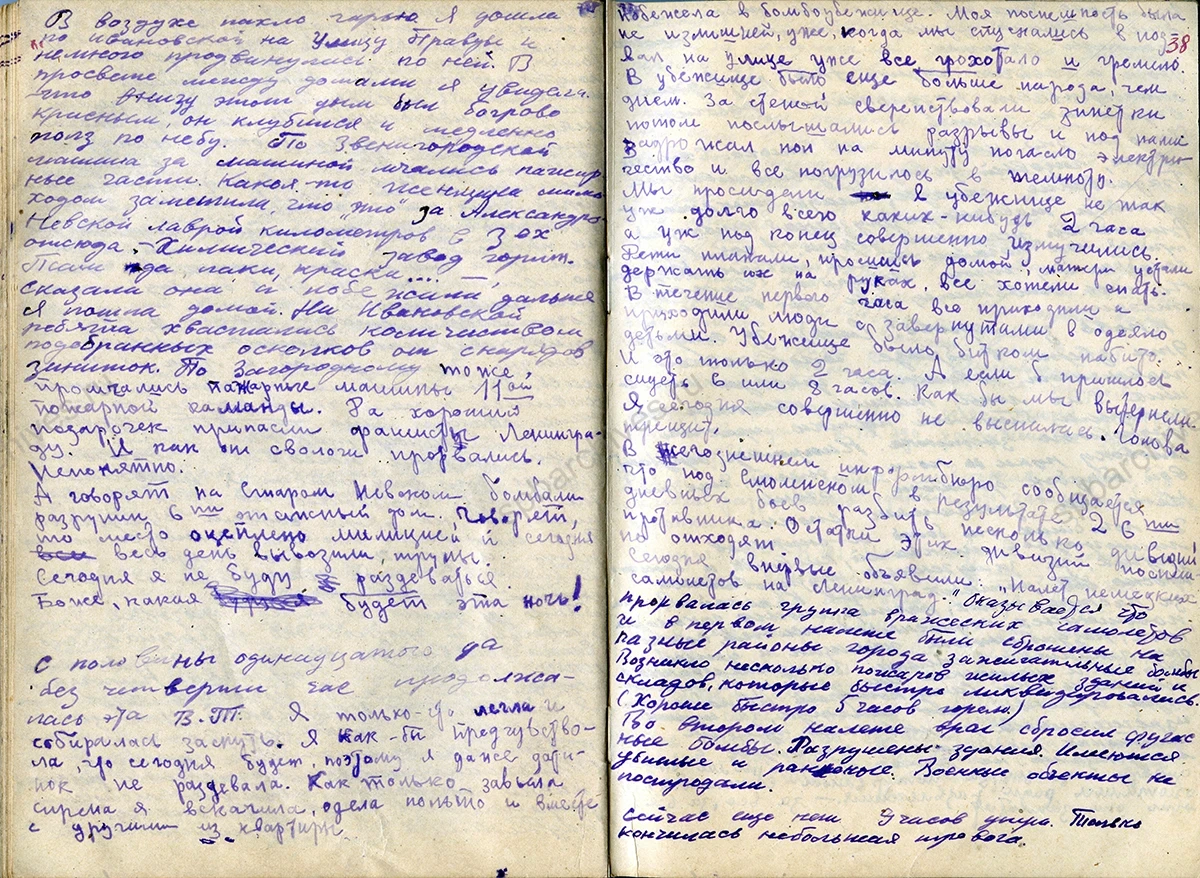 В воздухе пахло гарью. Я дошла
по Ивановской на Улицу Правды и
немного продвинулись по ней. В
просвете между домами я увидела
что внизу этот дым был богрово
красным он клубился и медленно
полз по небу. По Звенигородской
машина за машиной мчались пожар
ные части. Какая-то женщина мимо
ходом заметила, что "это" за Александро-
Невской лаврой километров в 3ех
отсюда. – Химический завод горит.
Там лаки, краски... –
сказала она и побежала дальше
Я пошла домой. На Ивановской
ребята хвастались количеством
подобранных осколков от снарядов
зениток. По Загородному тоже
промчались пажарные машины 11ой
пожарной каманды. Да хороший
подарочек припасли фашисты Ленингра-
ду. И как он сволочи прорвались.
Непонятно.
А говорят на Старом Невском бомбами
разрушили 6ти этажный дом. Говорят,
то место оцеплено милицией и сегодня
весь день вывозили трупы.
Сегодня я не буду раздеваться.
Боже, какая будет эта ночь!
С половины одинадцатого да
без четверти час продолжа-
лась эта В.Т. Я только-что легла и
собиралась заснуть. Я как-бы предчувство-
ла, что сегодня будет, поэтому я даже боти-
нок не раздевала. Как только завыла
сирена я вскачила, одела польто и вместе
с другими из квартиры
38
побежела в бомбоубежище. Моя поспешность была
не излишней, уже, когда мы спускались в под
вал на улице уже все грохотало и гремело.
В убежище было еще больше народа, чем
днем. За стеной сверепствовали зинетки
потом послышались разрывы и под нами
задрожал пол на минуту погасло электри
чество и все погрузилось в темноту.
Мы просидели в убежище не так
уж долго всего каких-нибудь 2 часа
а уж под конец совершенно измучились.
Дети плакали, просились домой, матери устали
держать их на руках, все хотели спать.
В течение первого часа все приходили и
приходили люди с завернутыми в одеяло
детьми. Убежище было битком набито.
И это только 2 часа. А если б пришлось
сидеть 6 или 8 часов. Как бы мы вытерпели.
Я сегодня совершенно не выспалась. Голова
трещит.
В сегодняшнем информбюро сообщается
что под Смоленском в результате 26ти
дневных боев разбиты несколько дивизий
противника. Остатки этих дивизий поспеш
но отходят.
Сегодня впервые объявили: "Налет немецких
самолетов на Ленинград." Оказывается что
прорвалась группа вражеских самолетов
и в первом налете были сброшены на
разные районы города зажигательные бомбы
Возникло несколько пожаров жилых зданий и
складов, которые быстро ликвидировались.
(Хорошо быстро 5 часов горели.)
Во втором налете враг сбросил фугас
ные бомбы. Разрушены здания. Имеются
убитые и раненые. Военные объекты не
пострадали.
Сейчас еще нет 9 часов утра. Только
кончилась небольшая тревога.